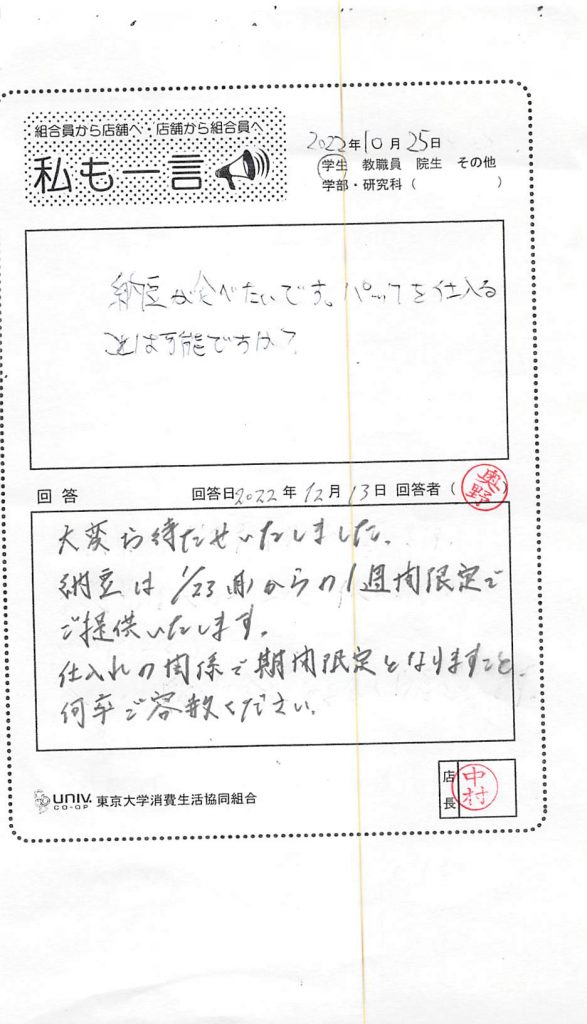 組合員から店舗へ・店舗から組合員へ
私も一言
2022年10月25日
学生 教職員 院生 その他
学部・研究科（ ）
納豆が食べたいです。パックを仕入る
ことは可能ですか？
回答 回答日2022年12月13日 回答者（奥野）
大変お待たせいたしました。
納豆は1/23(月)からの1週間限定で
ご提供いたします。
仕入れの関係で期間限定となりますこと、
何卒ご容赦ください。
店長 中村
UNIV. CO-OP 東京大学消費生活協同組合